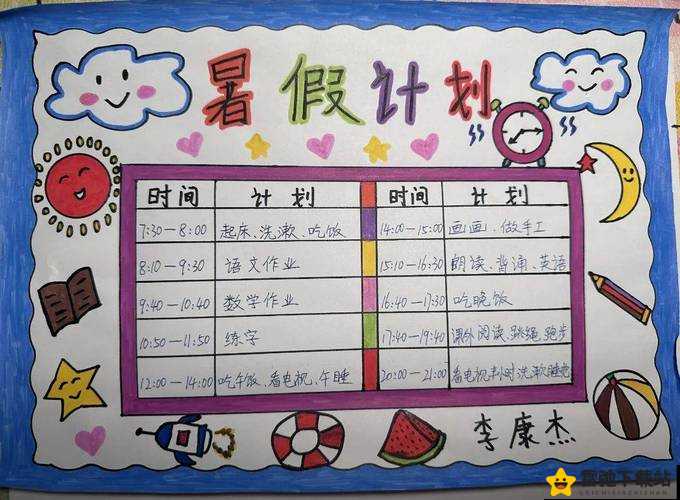 暑假计划
时间 计划 时间 计划
7:30—8:00 起床、洗漱、吃饭 14:00—15:00 画画、做手工
8:10—9:30 语文作业 15:10—16:30 朗读、背诵、英语
9:40—10:40 数学作业 16:40—17:30 吃晚饭
10:50—11:50 练字 17:40—19:40 课外阅读、跳绳、跑步
12:00—14:00 吃午饭、看电视、午睡 20:00—21:00 看电视半小时洗漱睡觉
李康杰
下载站